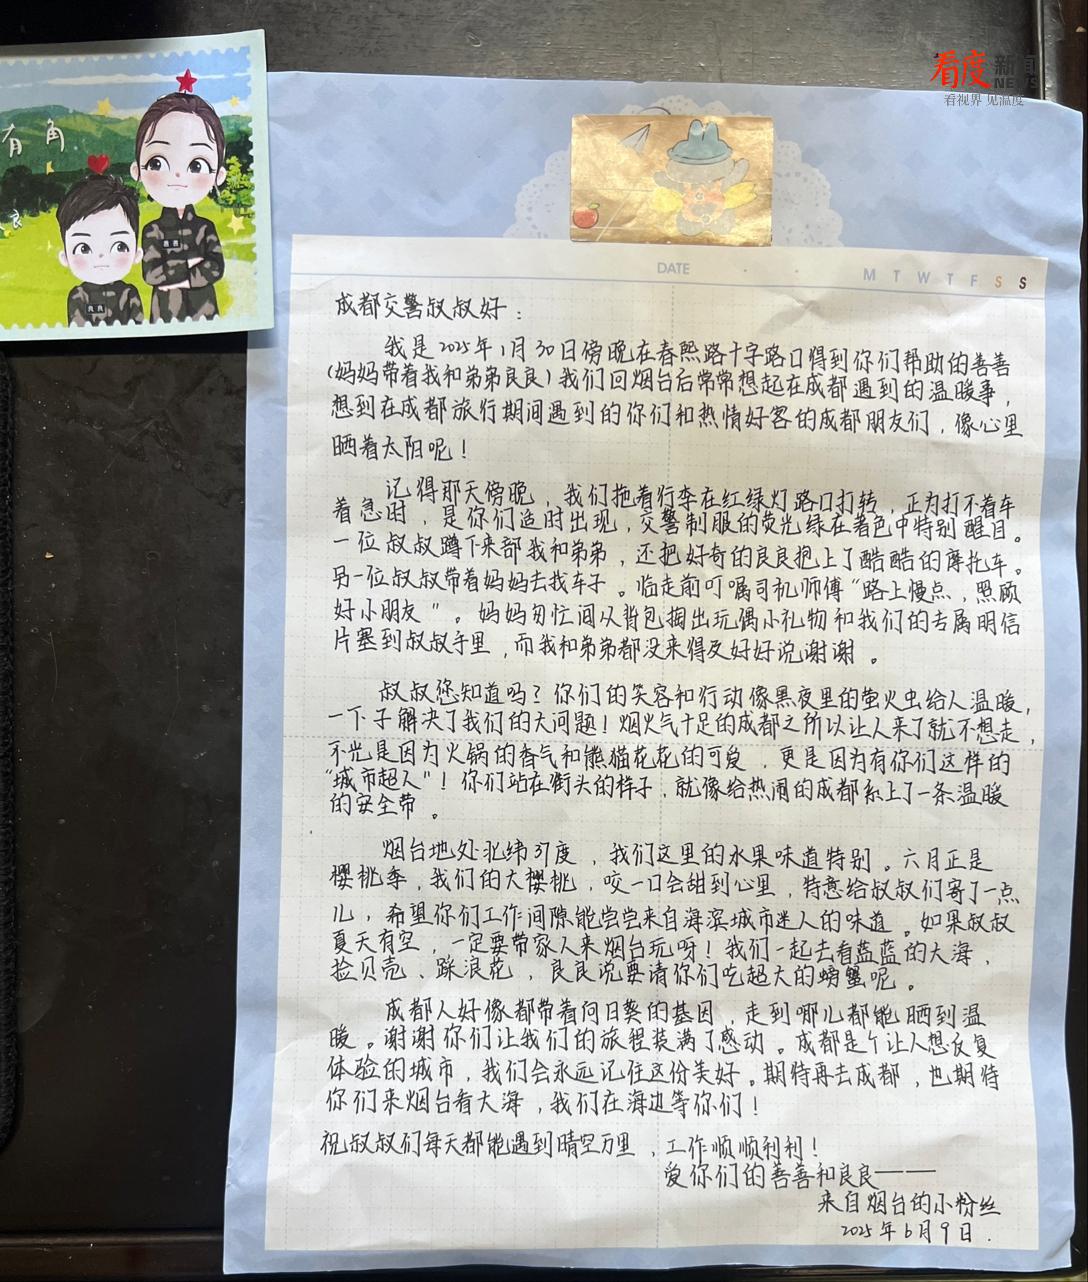 看度新闻
NEWS
看视界 见温度
有角
良
善善
良良
DATE
M T W T F S S
成都交警叔叔好：
我是2025年1月30日傍晚在春熙路十字路口得到你们帮助的善善
(妈妈带着我和弟弟良良)我们回烟台后常常想起在成都遇到的温暖事，
想到在成都旅行期间遇到的你们和热情好客的成都朋友们，像心里
晒着太阳呢！
记得那天傍晚，我们拖着行李在红绿灯路口打转，正为打不着车
着急时，是你们适时出现，交警制服的荧光绿在暮色中特别醒目。
一位叔叔蹲下来部我和弟弟，还把好奇的良良抱上了酷酷的摩托车。
另一位叔叔带着妈妈去找车子。临走前叮嘱司机师傅“路上慢点，照顾
好小朋友”。妈妈匆忙间从背包掏出玩偶小礼物和我们的专属明信
片塞到叔叔手里，而我和弟弟都没来得及好好说谢谢。
叔叔您知道吗？你们的笑容和行动像黑夜里的萤火虫给人温暖，
一下子解决了我们的大问题！烟火气十足的成都之所以让人来了就不想走，
不光是因为火锅的香气和熊猫花花的可爱，更是因为有你们这样的
“城市超人”！你们站在街头的样子，就像给热闹的成都系上了一条温暖
的安全带。
烟台地处北纬37度，我们这里的水果味道特别。六月正是
樱桃季，我们的大樱桃，咬一口会甜到心里，特意给叔叔们寄了一点
儿，希望你们工作间隙能尝尝来自海滨城市迷人的味道。如果叔叔
夏天有空，一定要带家人来烟台玩呀！我们一起去看蓝蓝的大海，
捡贝壳、踩浪花，良良说要请你们吃超大的螃蟹呢。
成都人好像都带着向日葵的基因，走到哪儿都能晒到温
暖。谢谢你们让我们的旅程装满了感动。成都是个让人想反复
体验的城市，我们会永远记住这份美好。期待再去成都，也期待
你们来烟台看大海，我们在海边等你们！
祝叔叔们每天都能遇到晴空万里，工作顺顺利利！
爱你们的善善和良良——
来自烟台的小粉丝
2025年6月9日.